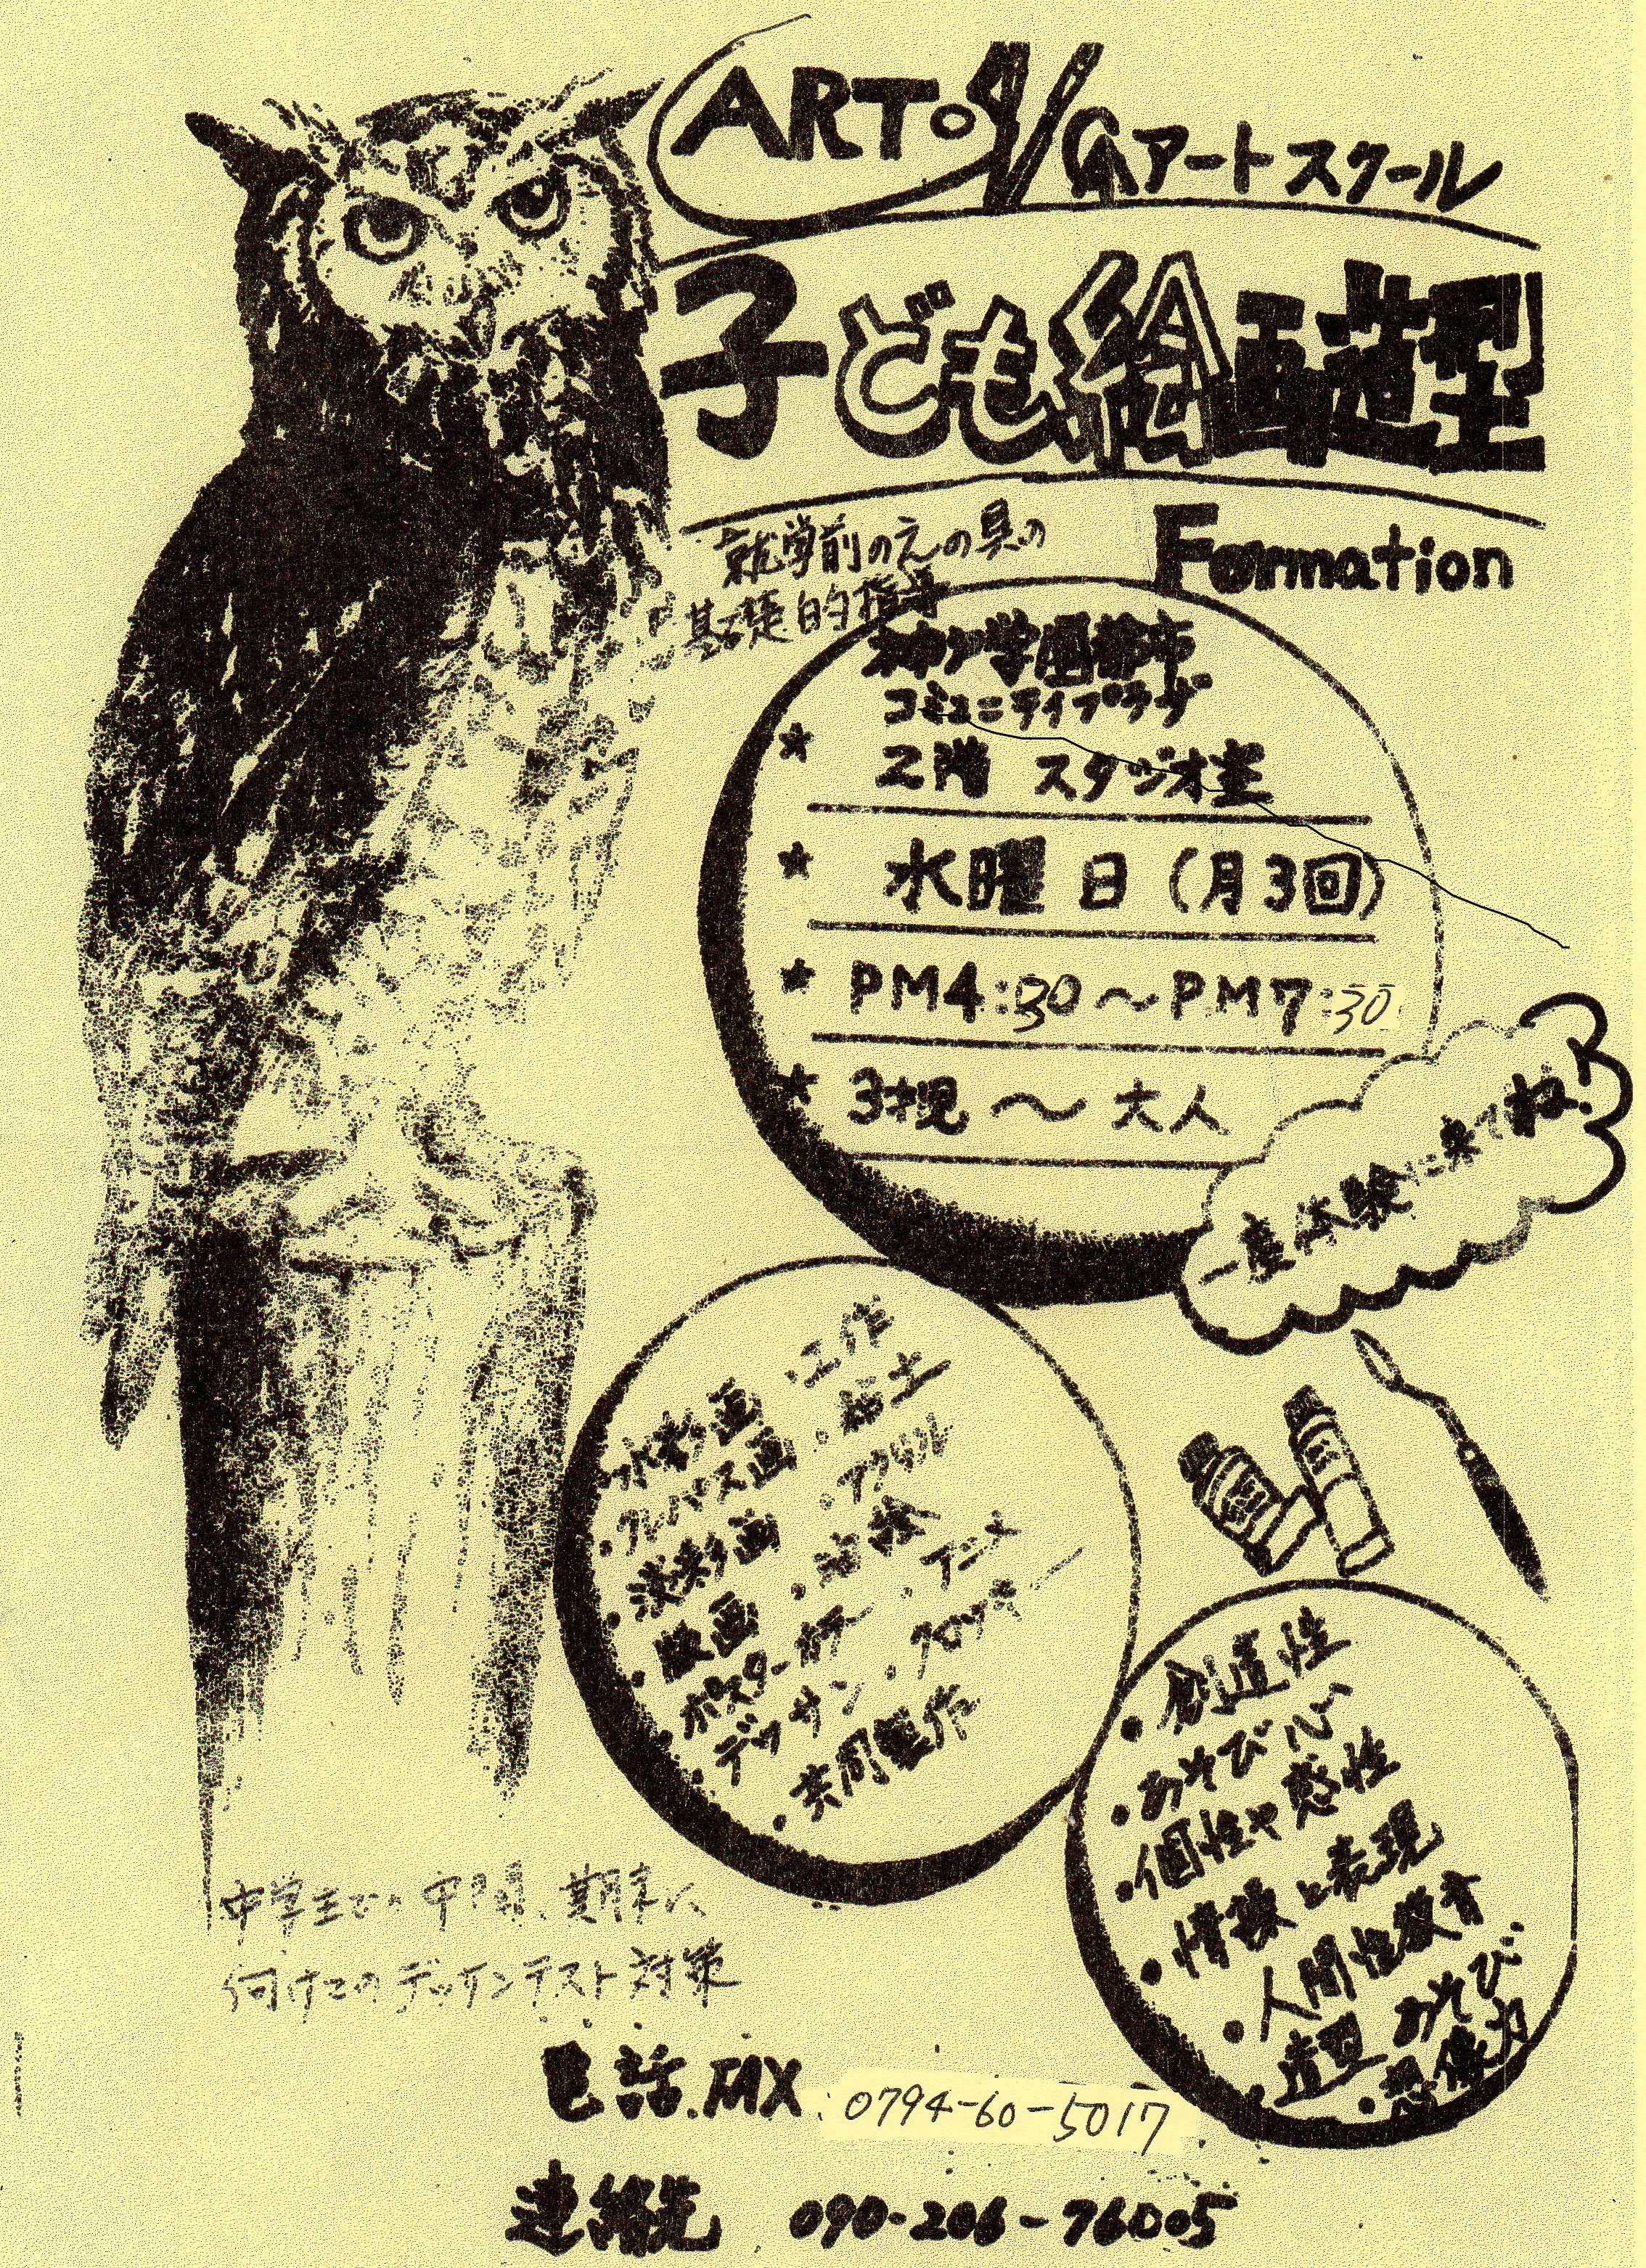 ART。
Gアートスクール
子ども絵画造型
Formation
就学前のえの具の
基礎的指導
神戸学園都市
コミュニティプラザ
★ 2階 スタジオ室
★ 水曜日(月3回)
★ PM4:30〜PM7:30
★ 3才児〜大人
一度体験に来てね!
・水彩画
・クレパス画
・淡彩画
・版画
・ポスターカラー
・デッサン
・共同製作
・工作
・粘土
・アクリル
・油絵
・アニメ
・クロッキー
・創造性
・あそび心
・個性や感性
・情操と表現
・人間性教育
・造型あそび
・想像力
中学生での中間、期末に
向けてのデッサンテスト対策
電話.FAX:0794-60-5017
連絡先 090-206-76005